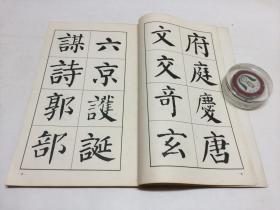 府庭慶唐
文交竒玄
六京護誕
謀詩郭部